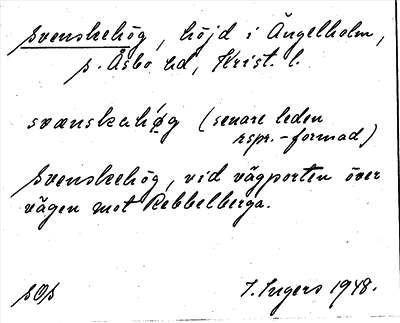 Svenskehög, höjd i Ängelholm,
s. Åsbo hd, Krist. l.
svænskahǿg (senare leden
rspr.-formad)
Svenskehög, vid vägporten över
vägen mot Rebbelberga.
sOs
I. Ingers 1948.